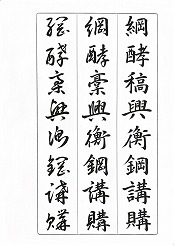 綱酵稿興衡鋼講購
綱酵稾興衡鋼講購
綱酵稾興衡鋼講購